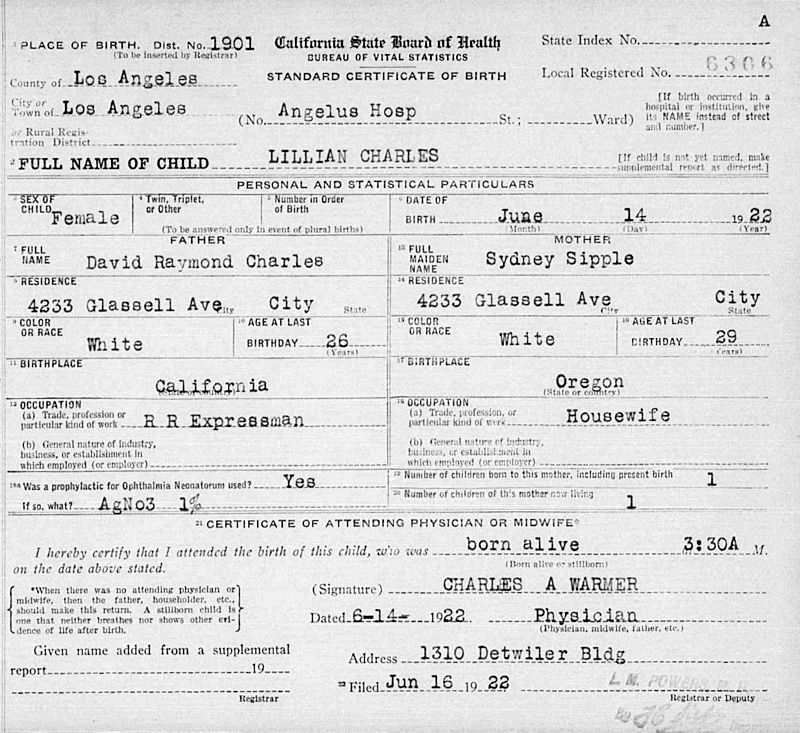 A
1 PLACE OF BIRTH. Dist. No. 1901
(To be inserted by Registrar)
California State Board of Health
BUREAU OF VITAL STATISTICS
STANDARD CERTIFICATE OF BIRTH
State Index No.
Local Registered No. 6306
County of Los Angeles
City or
Town of Los Angeles
or Rural Regis-
tration District
(No. Angelus Hosp St.; Ward)
[If birth occurred in a
hospital or institution, give
its NAME instead of street
and number.]
2 FULL NAME OF CHILD LILLIAN CHARLES
[If child is not yet named, make
supplemental report as directed.]
PERSONAL AND STATISTICAL PARTICULARS
3 SEX OF
CHILD Female
4 Twin, Triplet,
or Other
5 Number in Order
of Birth
(To be answered only in event of plural births)
6 DATE OF
BIRTH June 14 1922
(Month) (Day) (Year)
FATHER
7 FULL
NAME David Raymond Charles
MOTHER
13 FULL
MAIDEN
NAME Sydney Sipple
8 RESIDENCE
4233 Glassell Ave City City State
14 RESIDENCE
4233 Glassell Ave City City State
9 COLOR
OR RACE White
10 AGE AT LAST
BIRTHDAY 26
(Years)
15 COLOR
OR RACE White
16 AGE AT LAST
BIRTHDAY 29
(Years)
11 BIRTHPLACE
California
(State or country)
17 BIRTHPLACE
Oregon
(State or country)
12 OCCUPATION
(a) Trade, profession or
particular kind of work R R Expressman
(b) General nature of industry,
business, or establishment in
which employed (or employer)
18 OCCUPATION
(a) Trade, profession, or
particular kind of work Housewife
(b) General nature of industry,
business, or establishment in
which employed (or employer)
18a Was a prophylactic for Ophthalmia Neonatorum used? Yes
If so, what? AgNo3 1%
19 Number of children born to this mother, including present birth 1
20 Number of children of this mother now living 1
21 CERTIFICATE OF ATTENDING PHYSICIAN OR MIDWIFE*
I hereby certify that I attended the birth of this child, who was born alive 3:30A M.
(Born alive or stillborn)
on the date above stated.
*When there was no attending physician or
midwife, then the father, householder, etc.,
should make this return. A stillborn child is
one that neither breathes nor shows other evi-
dence of life after birth.
(Signature) CHARLES A WARMER
Dated 6-14- 1922 Physician
(Physician, midwife, father, etc.)
Given name added from a supplemental
report 19
Registrar
Address 1310 Detwiler Bldg
22 Filed Jun 16 1922 L. M. POWERS M. D.
Registrar or Deputy